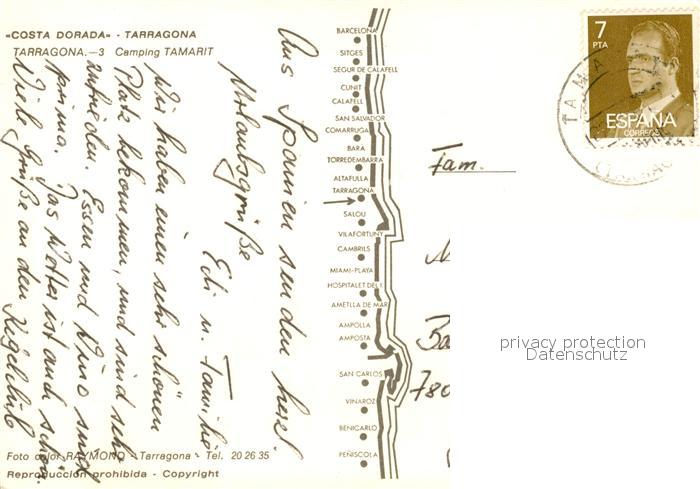 «COSTA DORADA» - TARRAGONA
TARRAGONA.-3 Camping TAMARIT
Aus Spanien senden herzl.
Urlaubsgrüße
Edi u. Familie
Wir haben einen sehr schönen
Platz bekommen, und sind sehr
zufrieden. Essen und Vino sind
prima. Das Wetter ist auch schön.
Viele Grüße an den Kegelclub
Foto color RAYMOND - Tarragona - Tel. 20 26 35
Reproducción prohibida - Copyright
BARCELONA
SITGES
SEGUR DE CALAFELL
CUNIT
CALAFELL
SAN SALVADOR
COMARRUGA
BARA
TORREDEMBARRA
ALTAFULLA
TARRAGONA
SALOU
VILAFORTUNY
CAMBRILS
MIAMI-PLAYA
HOSPITALET DEL I.
AMETLLA DE MAR
AMPOLLA
AMPOSTA
SAN CARLOS
VINAROZ
BENICARLO
PEÑISCOLA
7
PTA
ESPAÑA
CORREOS
Fam.
privacy protection
Datenschutz